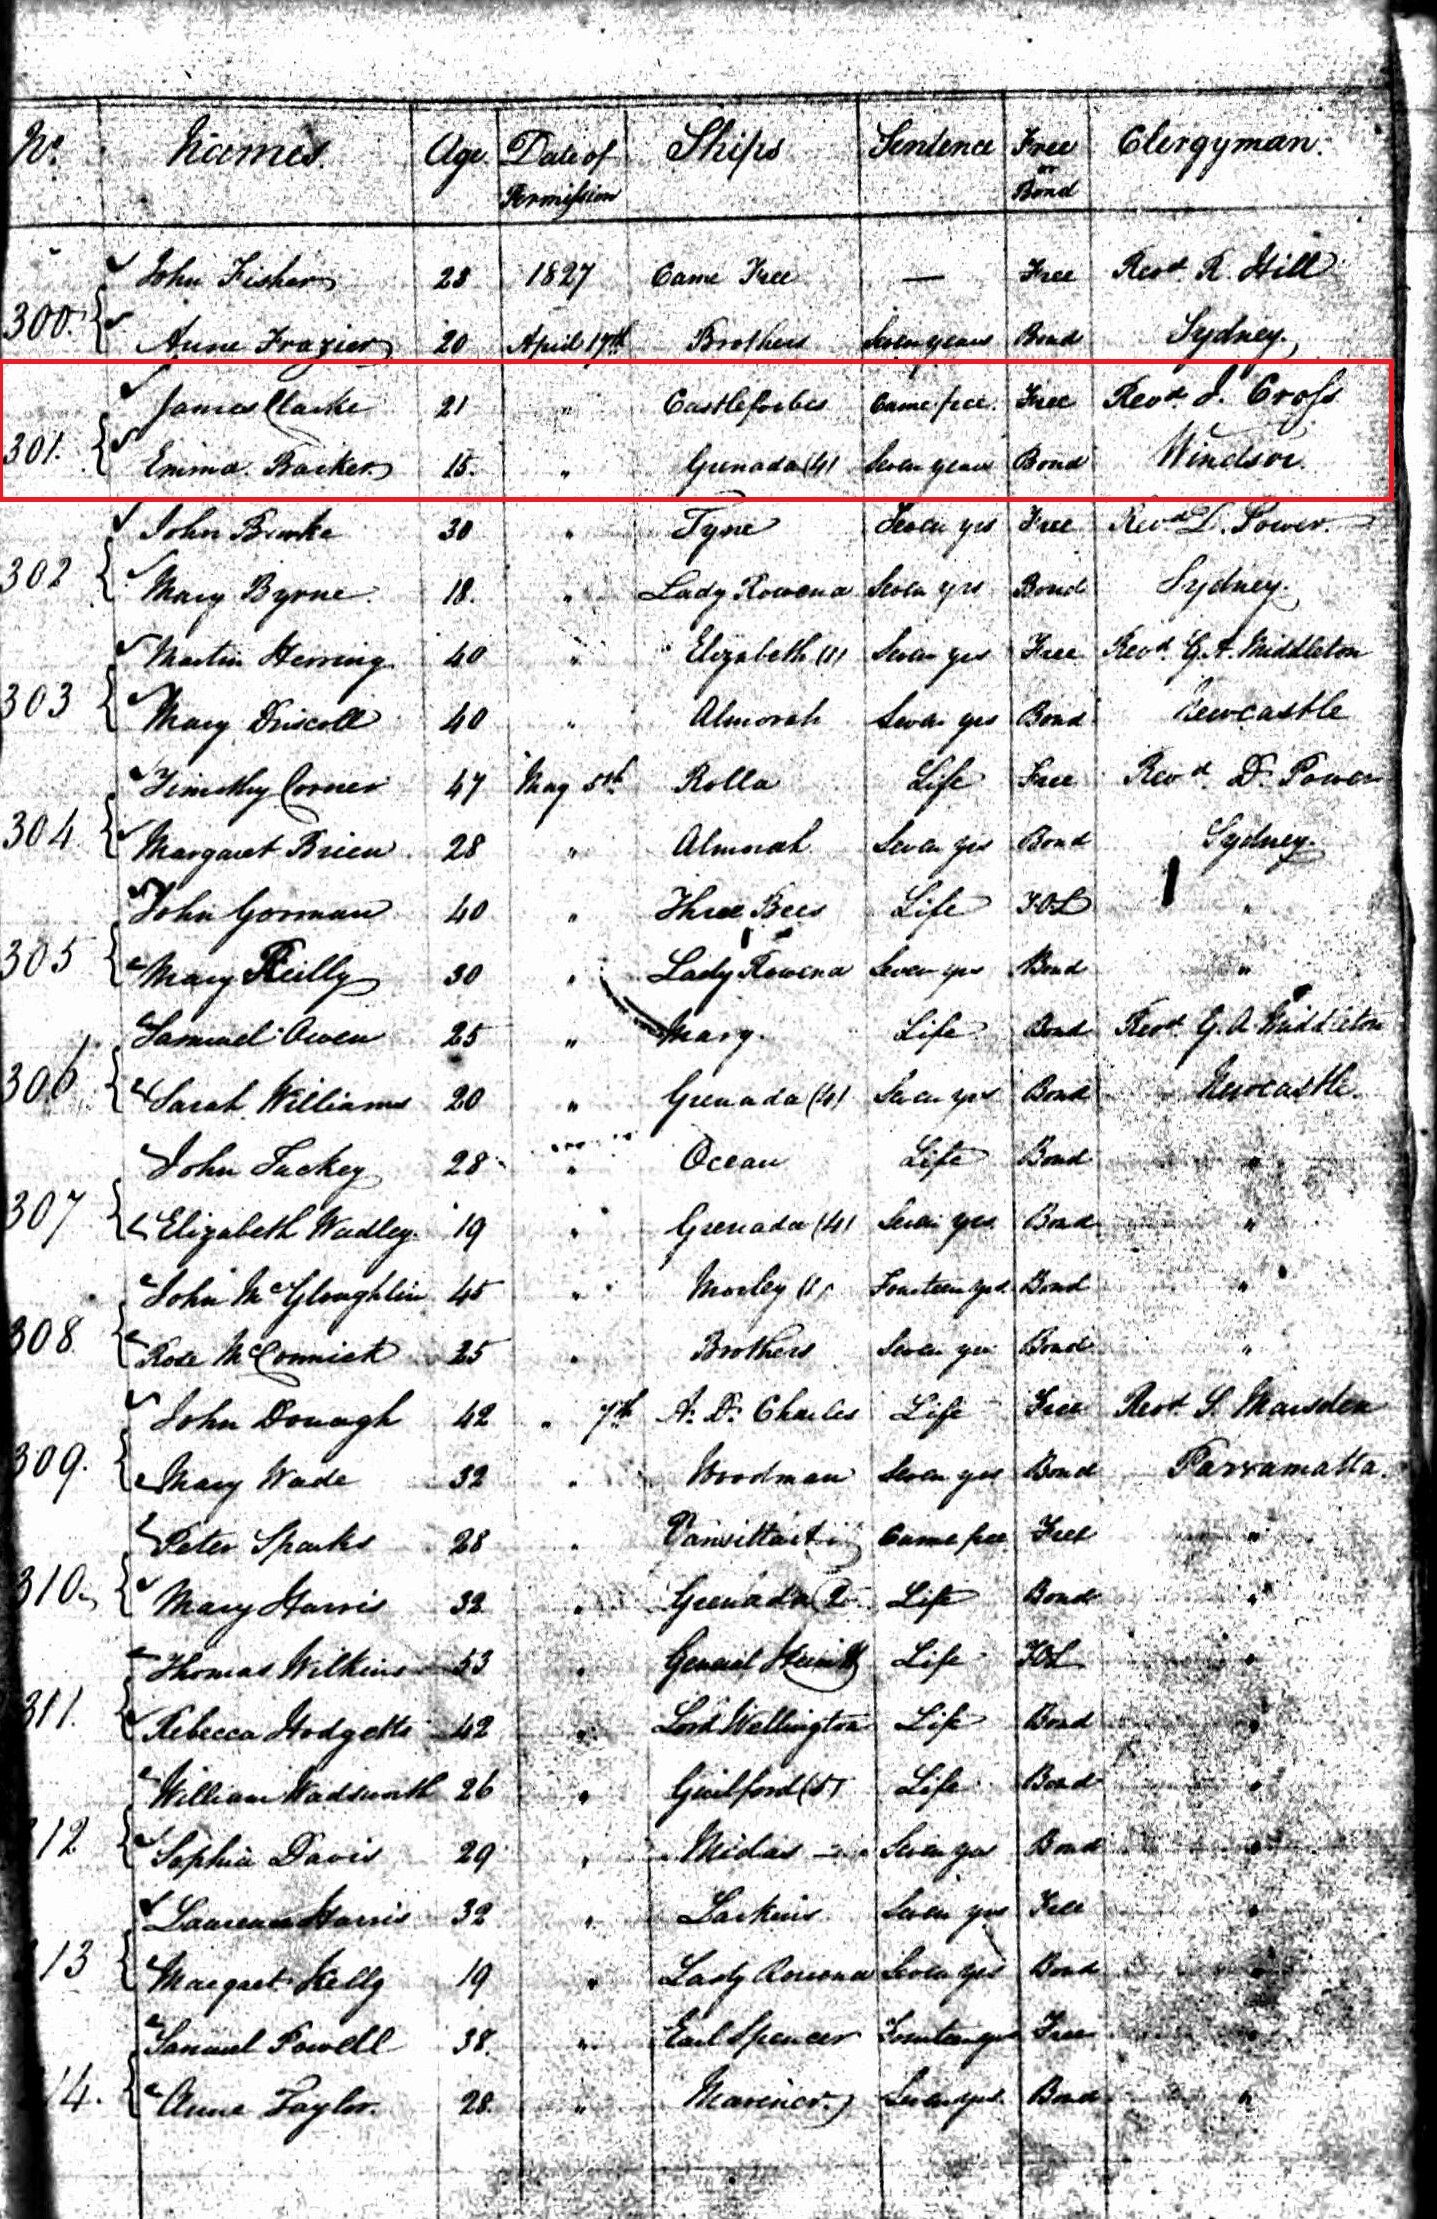 No. Names. Age Date of Permission Ships Sentence Free or Bond Clergyman.
John Fisher 23 1827 Came Free — Free Revd. R. Hill
300. Anne Frazier 20 April 17th Brothers Seven years Bond Sydney.
James Clarke 21 " Castleforbes Came free. Free Revd. J. Cross
301. Emma Barker 15. " Grenada (4) Seven years Bond Windsor.
John Burke 30 " Tyne Seven yrs Free Revd. D. Power.
302 Mary Byrne. 18. " Lady Rowena Seven yrs Bond Sydney.
Martin Herring 40 " Elizabeth (1) Seven yrs Free Revd. G. A. Middleton
303 Mary Driscoll 40 " Almorah Seven yrs Bond Newcastle
Timothy Corner 47 May 5th Rolla Life Free Revd. D. Power
304 Margaret Brien 28 " Almorah Seven yrs Bond Sydney.
John Gorman 40 " Three Bees Life TOL "
305 Mary Reilly 30 " Lady Rowena Seven yrs Bond "
Samuel Owen 25 " Mary. Life Bond Revd. G. A. Middleton
306 Sarah Williams 20 " Grenada (4) Seven yrs Bond Newcastle.
John Tuckey 28 " Ocean Life Bond "
307 Elizabeth Wadley. 19 " Grenada (4) Seven yrs Bond "
John McGloughlin 45 " Morley (1) Fourteen yrs. Bond "
308 Rose McCormick 25 " Brothers Seven yrs Bond "
John Donagh 42 " 7th A. D. Charles Life Free Revd. S. Marsden
309. Mary Wade 32 " Woodman Seven yrs Bond Parramatta.
Peter Sparks 28 " Vansittart Came free Free "
310 Mary Harris 32 " Grenada (2 Life Bond "
Thomas Wilkins 53 " General Life TOL "
311. Rebecca Hodgetts 42 " Lord Wellington Life Bond "
William Wadsworth 26 " Guilford (5) Life Bond "
312 Sophia Davis 29 " Midas Seven yrs Bond "
Laurence Harris 32 " Larkins Seven yrs Free "
313 Margaret Kelly 19 " Lady Rowena Seven yrs Bond "
Samuel Powell 38. " Earl Spencer Fourteen yrs Free "
14. Anne Taylor. 28. " Mariner. Seven yrs. Bond "